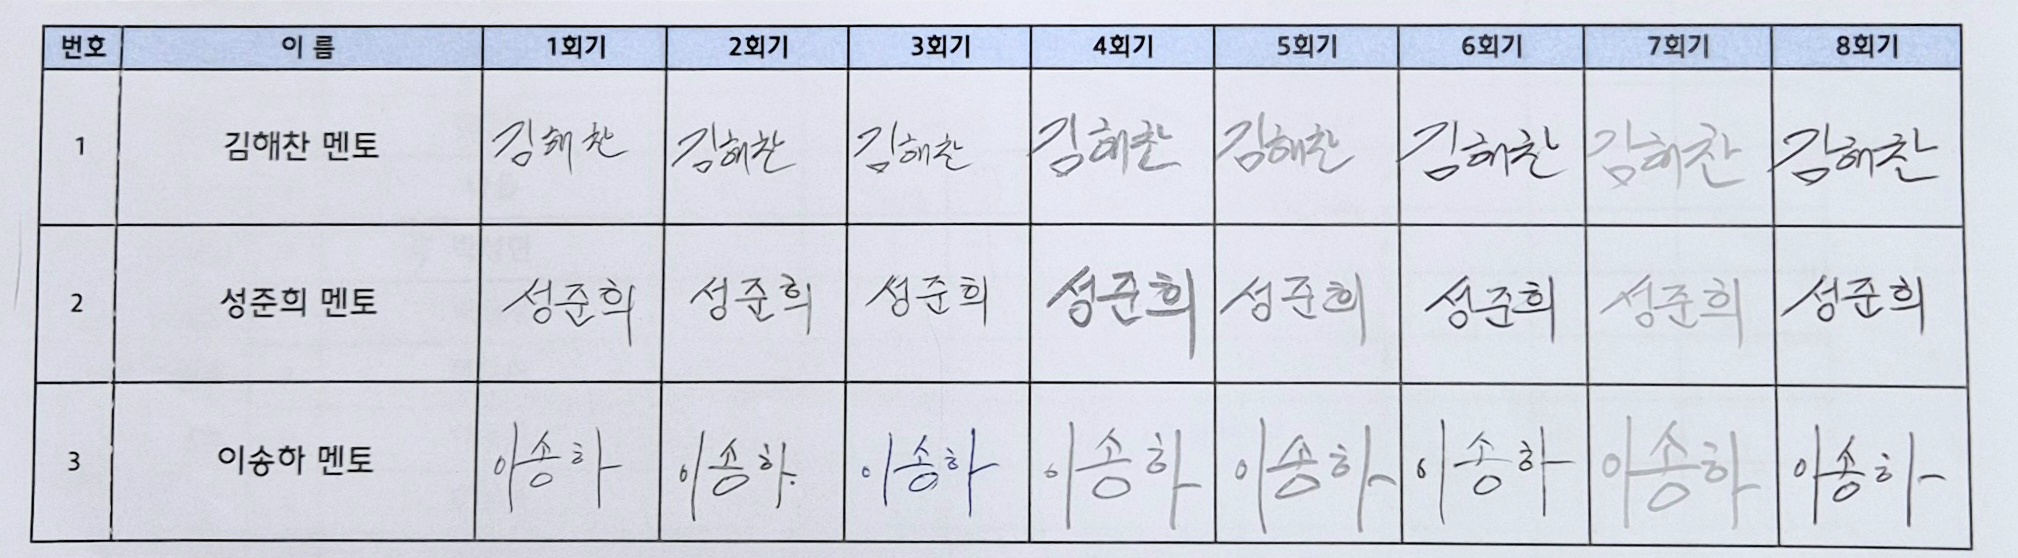 번호 이 름 1회기 2회기 3회기 4회기 5회기 6회기 7회기 8회기
1 김해찬 멘토 김해찬 김해찬 김해찬 김해찬 김해찬 김해찬 김해찬 김해찬
2 성준희 멘토 성준희 성준희 성준희 성준희 성준희 성준희 성준희 성준희
3 이송하 멘토 이송하 이송하 이송하 이송하 이송하 이송하 이송하 이송하